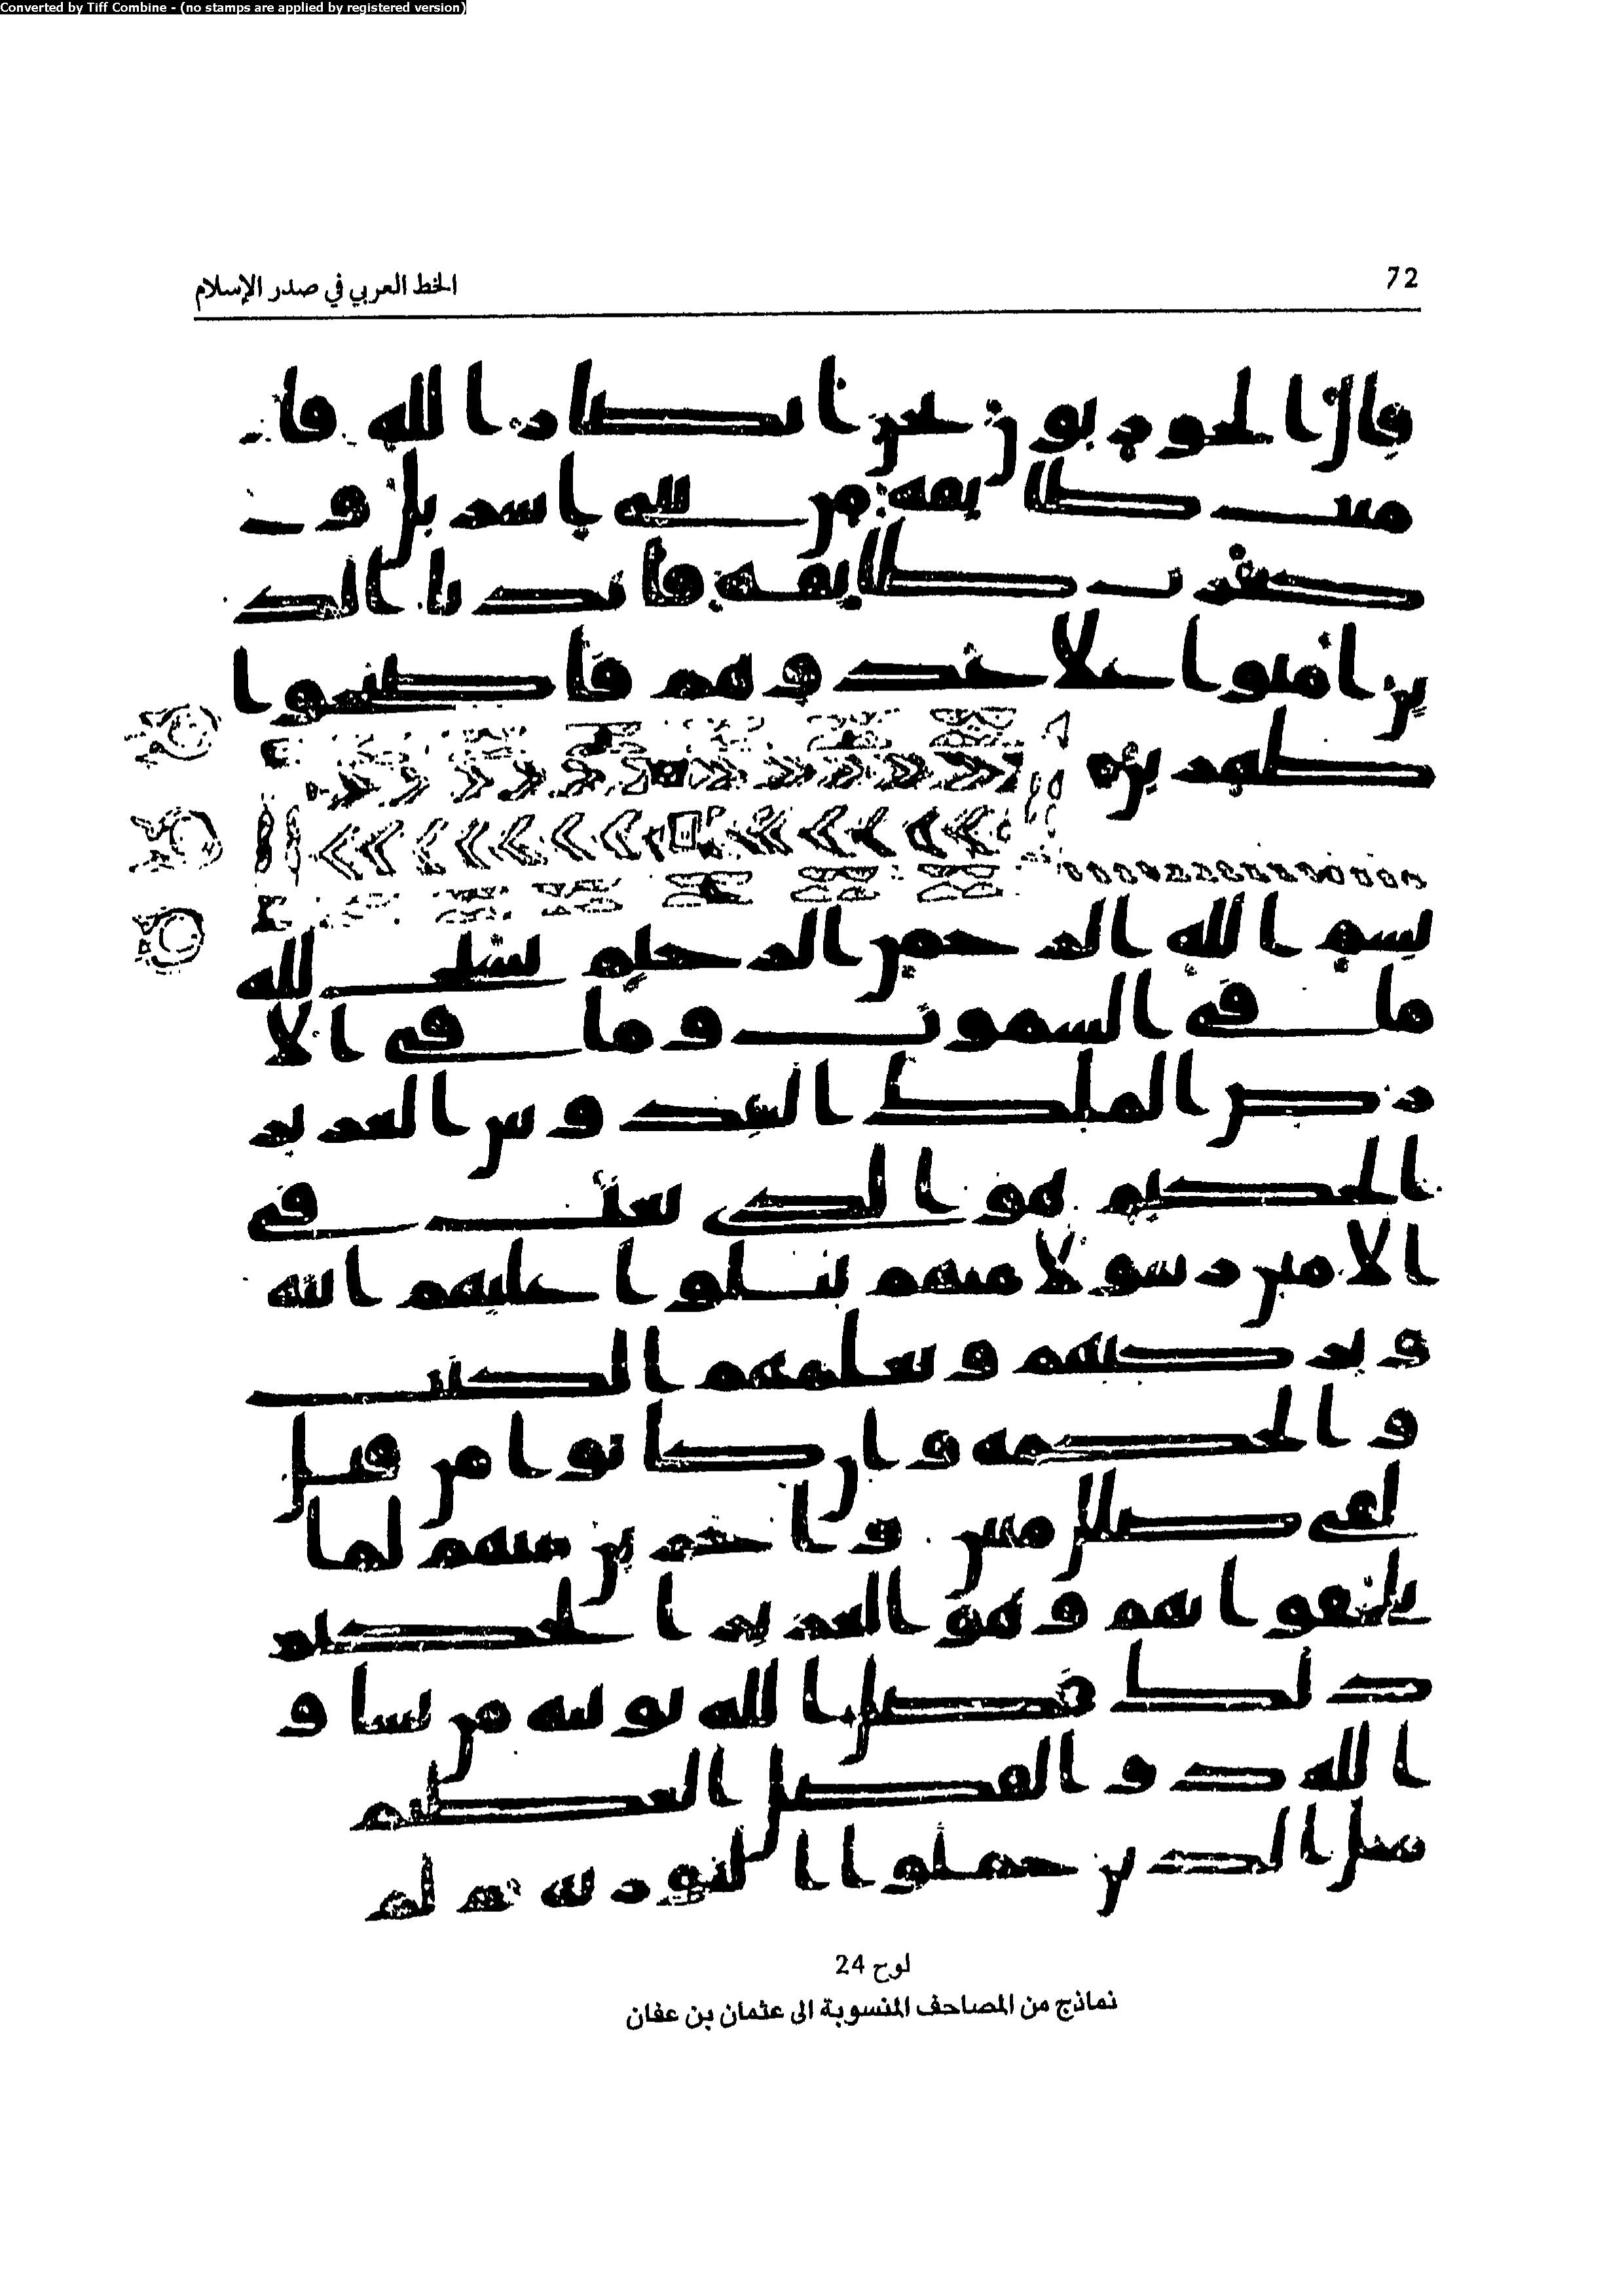 Converted by Tiff Combine - (no stamps are applied by registered version)
72
الخط العربي في صدر الإسلام
قال الحواريون نحن انصار الله فا
منت طائفة من بني اسر يل و
كفرت طائفة فايدنا الذ
ين امنوا على عدوهم فاصبحوا
ظهرين
بسم الله الرحمن الرحيم يسبح لله
ما في السموت وما في الا
رض الملك القدوس العزيز
الحكيم هو الذي بعث في
الامين رسولا منهم يتلوا عليهم ايته
ويزكيهم ويعلمهم الكتب
والحكمة وان كانوا من قبل
لفي ضلل مبين واخرين منهم لما
يلحقوا بهم وهو العزيز الحكيم
ذلك فضل الله يوتيه من يشا و
الله ذو الفضل العظيم
مثل الذين حملوا التورية ثم لم
لوح 24
نماذج من المصاحف المنسوبة الى عثمان بن عفان